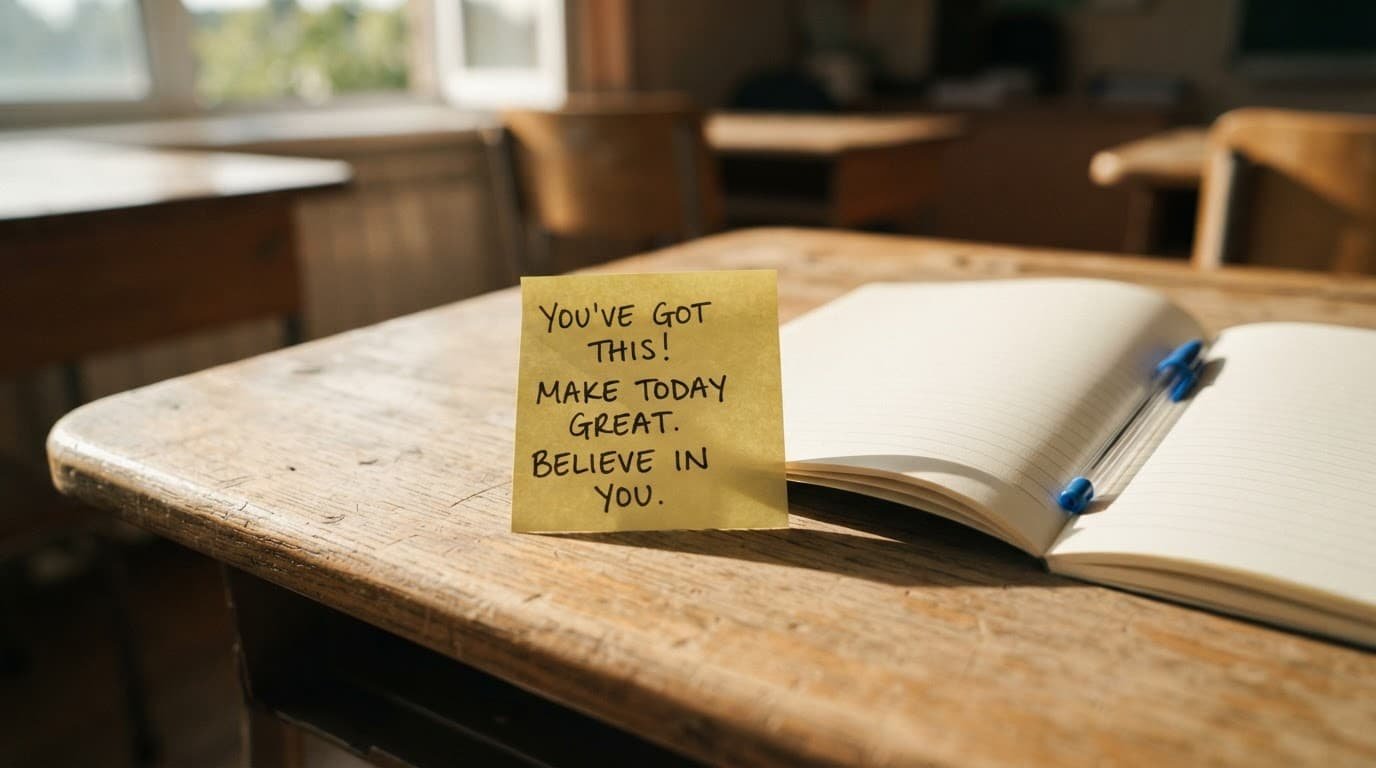 YOU'VE GOT
THIS!
MAKE TODAY
GREAT.
BELIEVE IN
YOU.